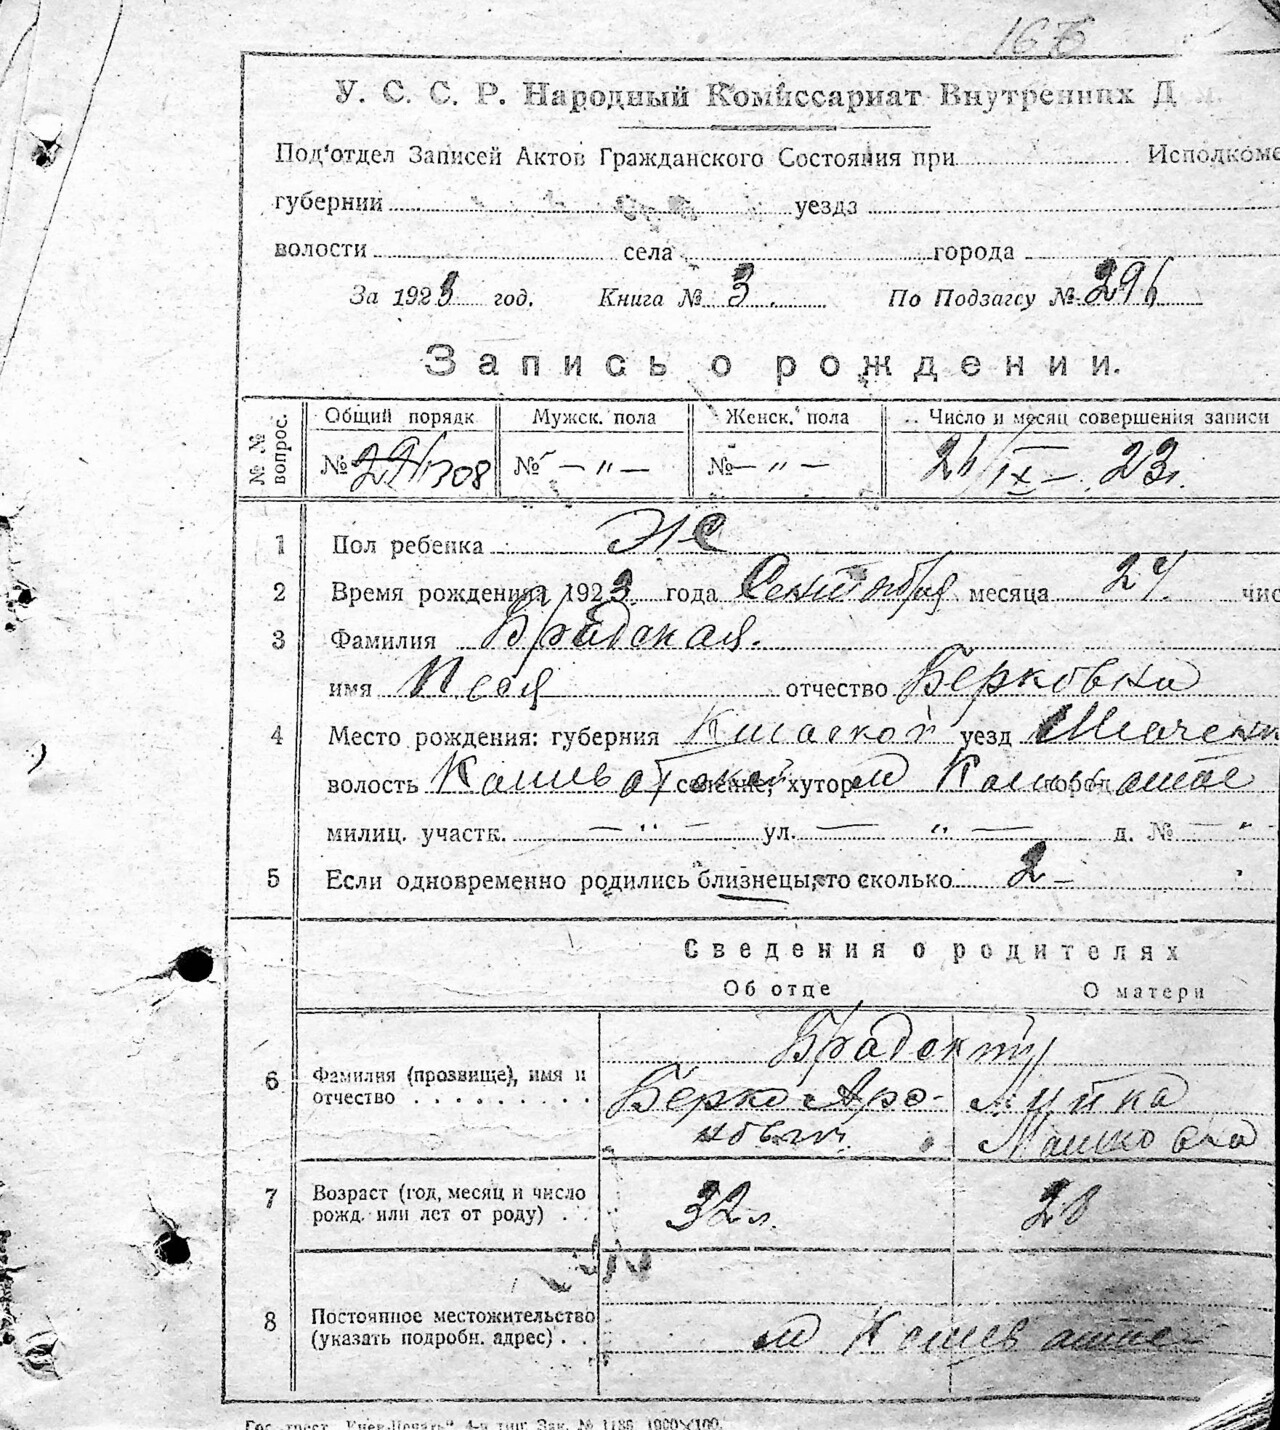 У. С. С. Р. Народный Комиссариат Внутренних Д
Под'отдел Записей Актов Гражданского Состояния при Исполкоме
губернии уезда
волости села города
За 1923 год. Книга № 3. По Подзагсу № 296
Запись о рождении.
№ № вопрос. Общий порядк Мужск. пола Женск. пола Число и месяц совершения записи
№ 308 № — „ — № — „ — 26/IX — 23г.
1 Пол ребенка Же
2 Время рождения 1923 года Сентября месяца 24 чис
3 Фамилия Брадская.
имя Песя отчество Берковна
4 Место рождения: губерния Киевской уезд
волость селение, хутор м город
милиц. участк. — „ — ул. — „ — д. № — „
5 Если одновременно родились близнецы, то сколько 2 —
Сведения о родителях
Об отце О матери
6 Фамилия (прозвище), имя и
отчество . . . . . . . . .
Берко Аро-
нович.
Машковна
7 Возраст (год, месяц и число
рожд. или лет от роду) . .
32 л. 28
8 Постоянное местожительство
(указать подробн. адрес) . .
м Кошевате